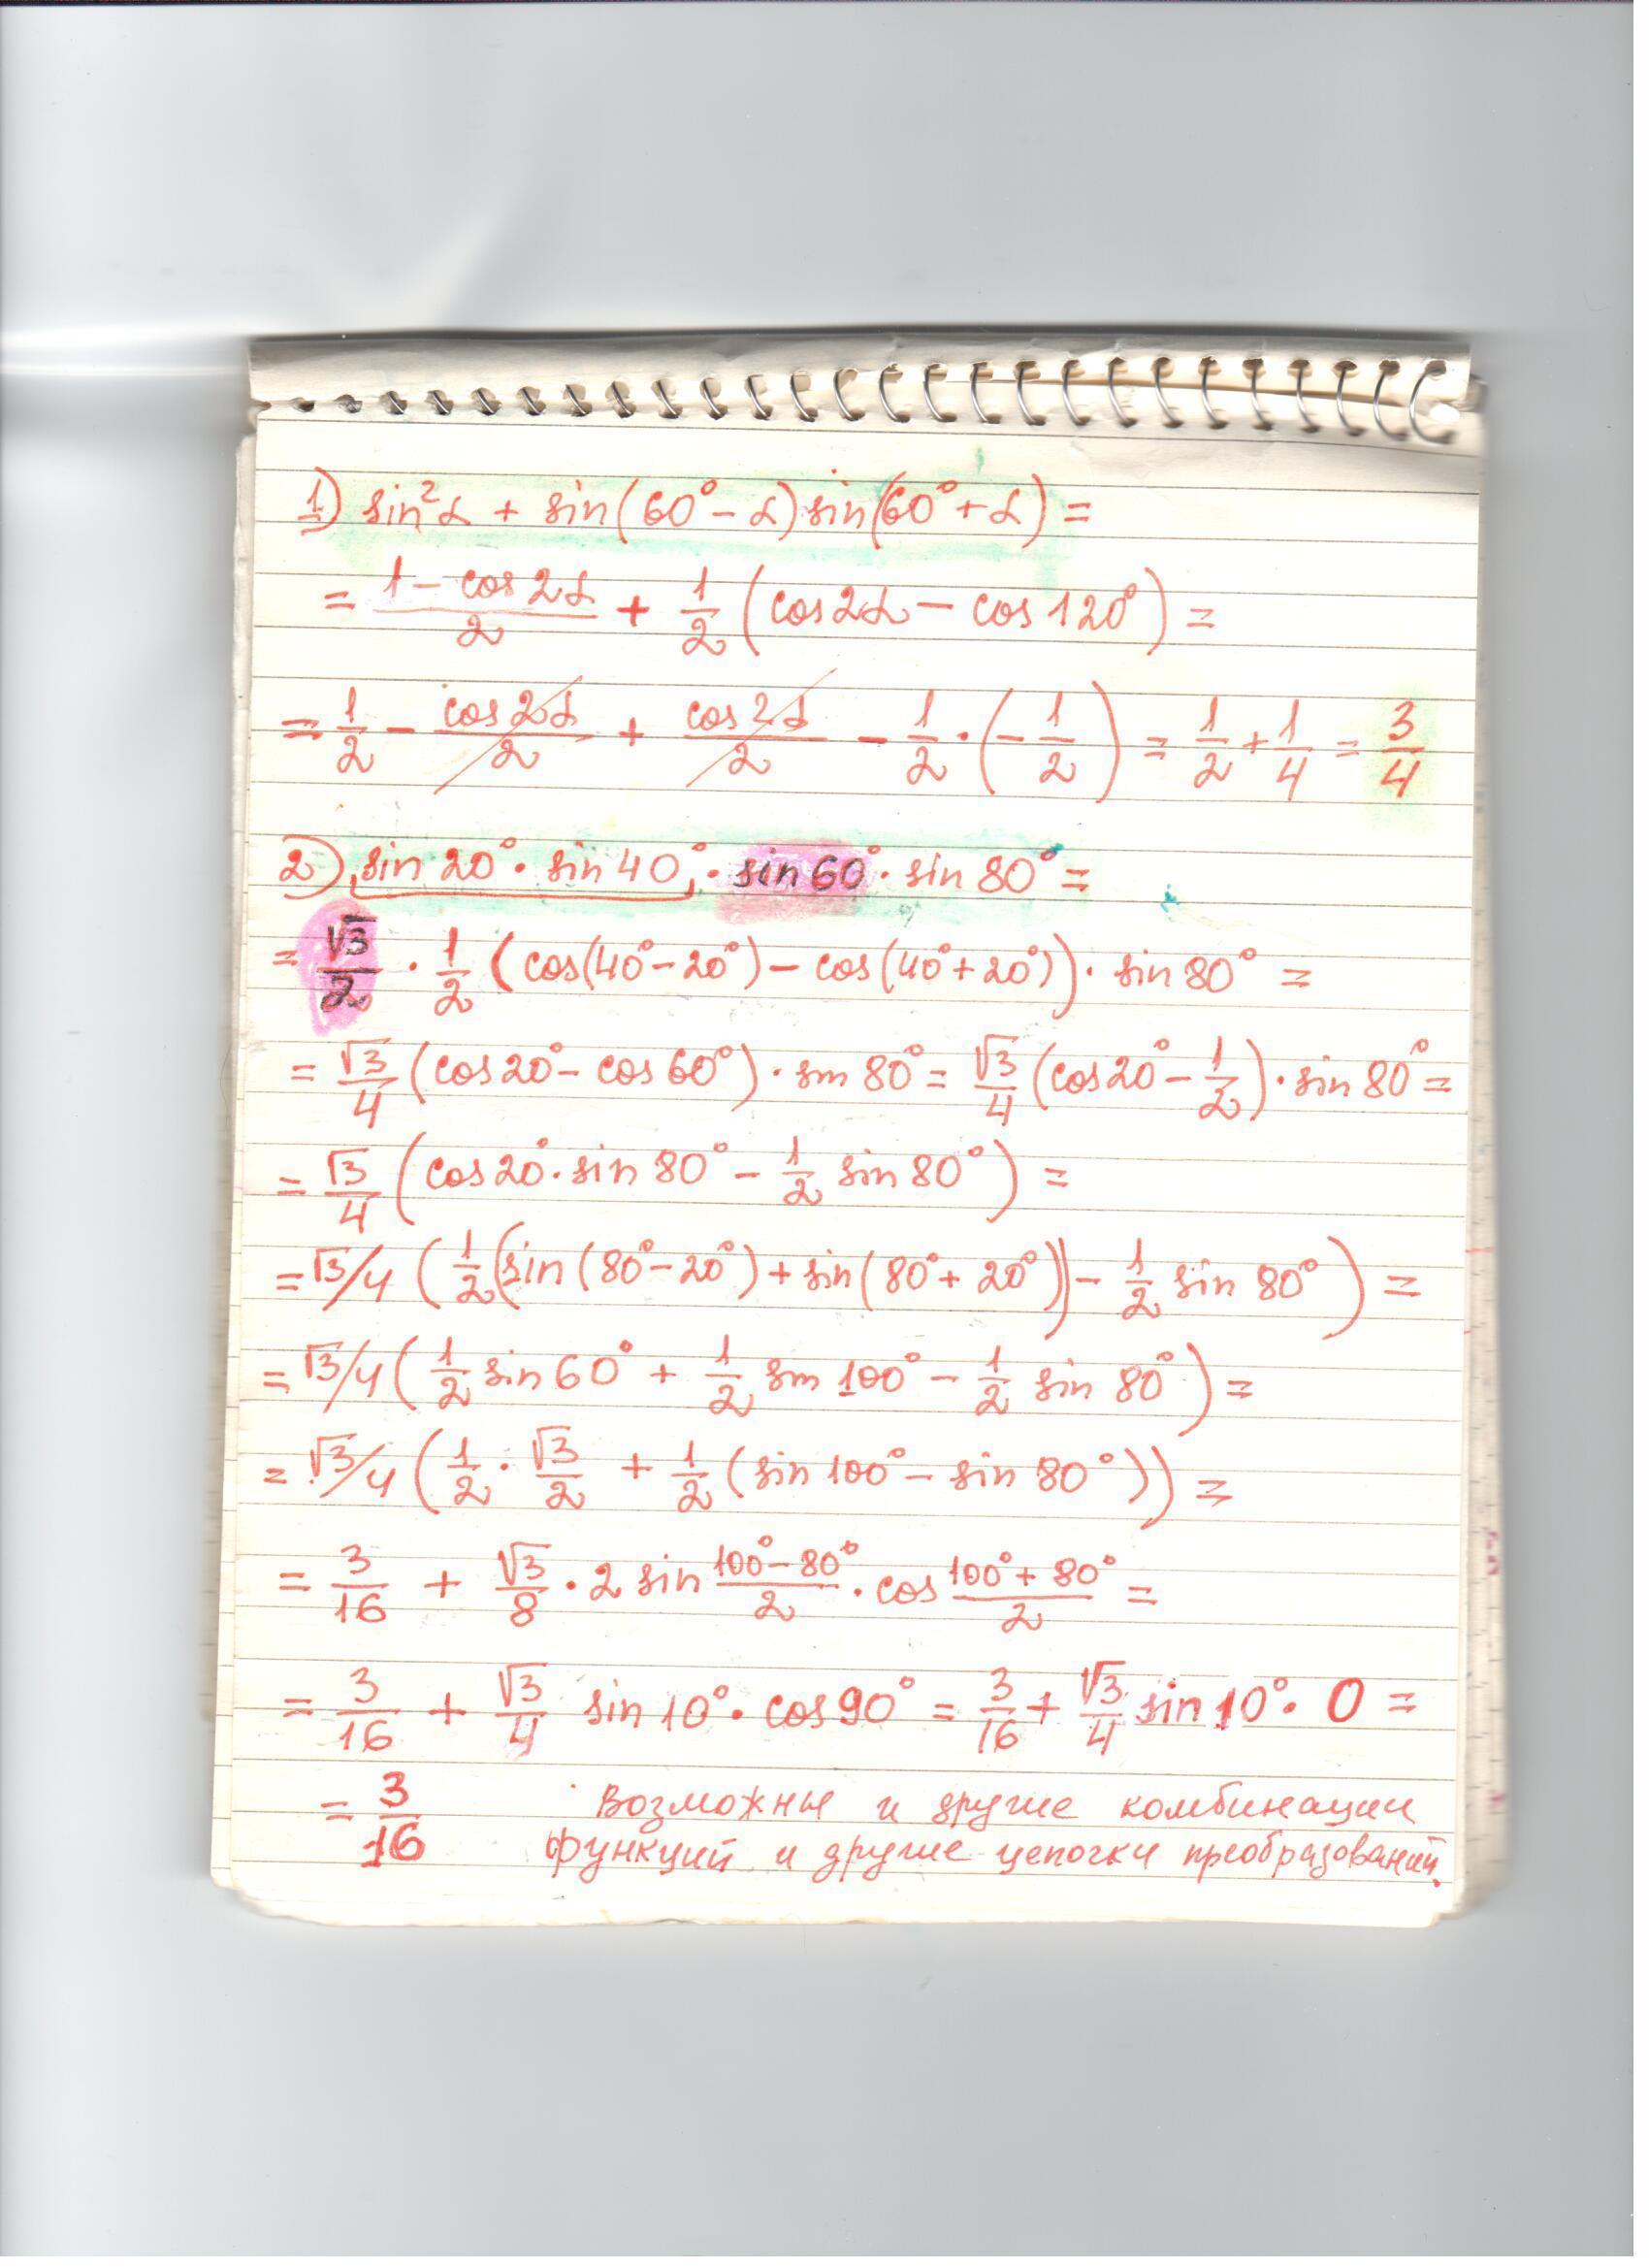 1) sin²α + sin(60° − α) sin(60° + α) =
= (1 − cos 2α)/2 + 1/2 (cos 2α − cos 120°) =
= 1/2 − cos 2α/2 + cos 2α/2 − 1/2 · (−1/2) = 1/2 + 1/4 = 3/4
2) sin 20° · sin 40° · sin 60° · sin 80° =
= √3/2 · 1/2 (cos(40° − 20°) − cos(40° + 20°)) · sin 80° =
= √3/4 (cos 20° − cos 60°) · sin 80° = √3/4 (cos 20° − 1/2) · sin 80° =
= √3/4 (cos 20° · sin 80° − 1/2 sin 80°) =
= √3/4 (1/2 (sin(80° − 20°) + sin(80° + 20°)) − 1/2 sin 80°) =
= √3/4 (1/2 sin 60° + 1/2 sin 100° − 1/2 sin 80°) =
= √3/4 (1/2 · √3/2 + 1/2 (sin 100° − sin 80°)) =
= 3/16 + √3/8 · 2 sin (100° − 80°)/2 · cos (100° + 80°)/2 =
= 3/16 + √3/4 sin 10° · cos 90° = 3/16 + √3/4 sin 10° · 0 =
= 3/16 Возможны и другие комбинации
функций и другие цепочки преобразований.